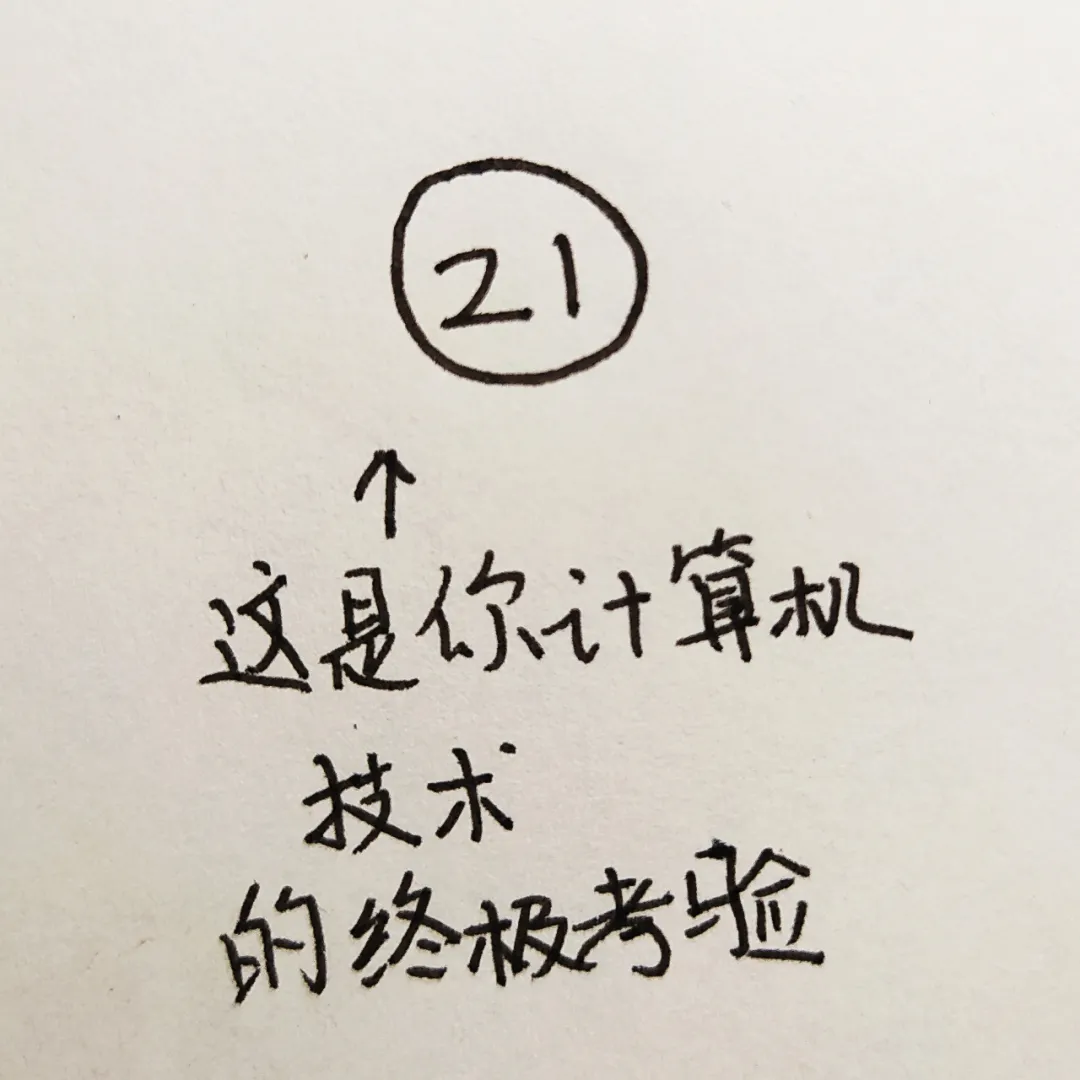 21
↑
这是你计算机
技术
的终极考验